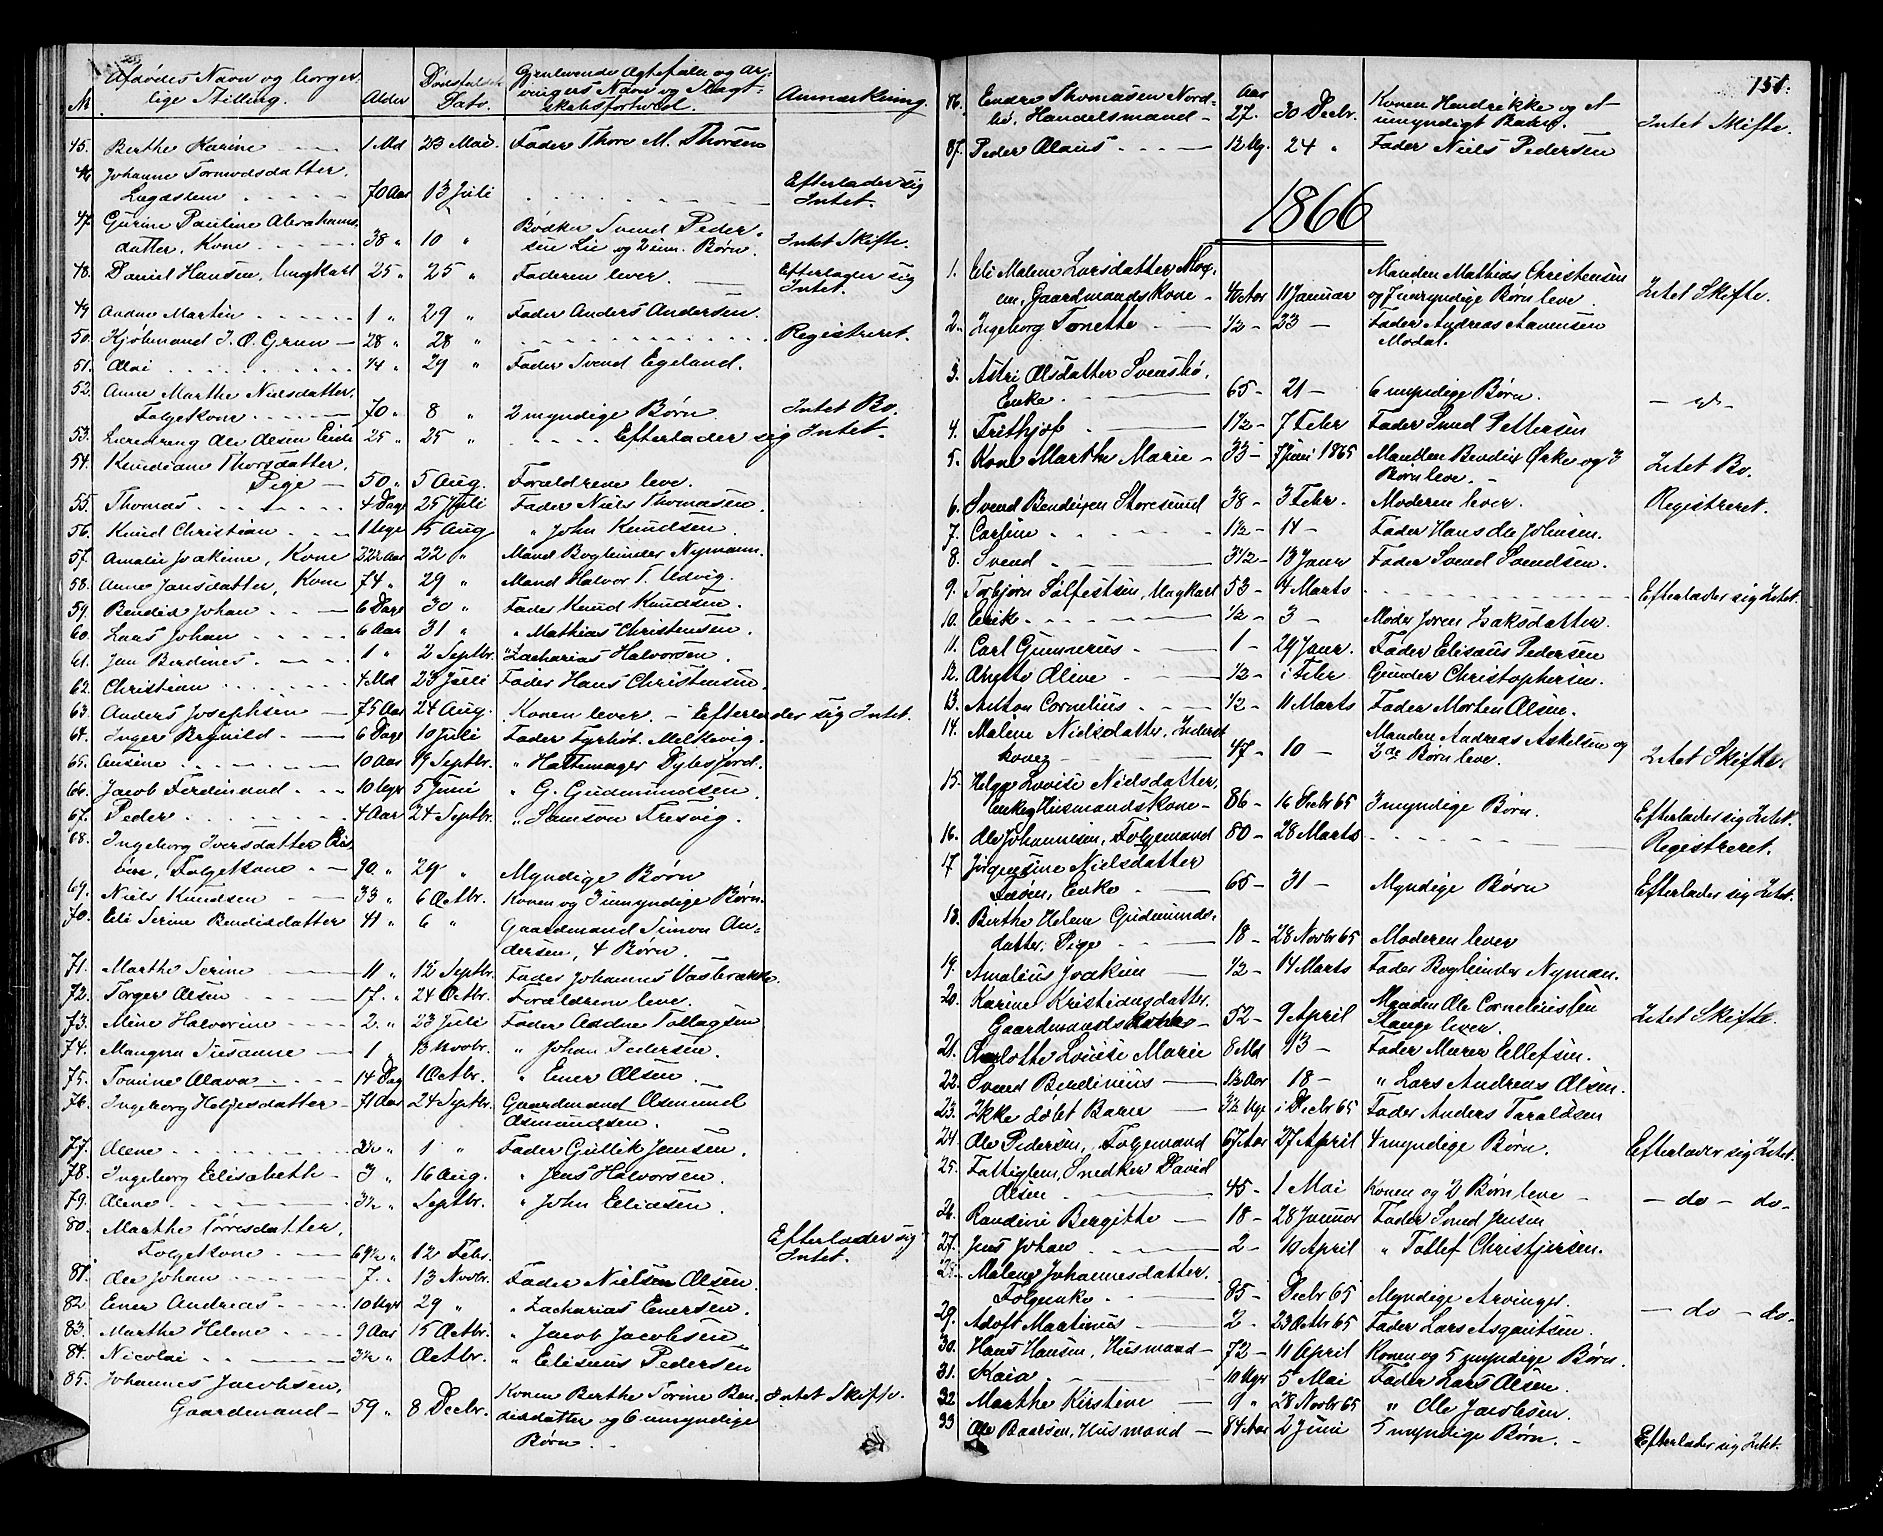 No Afdødes Navn og borger- Alder Dødsfaldets Gjenlevende Ægtefælle og Ar- Anmærkning.
lige Stilling. Dato. vingers Navn og Slægt-
skabsforhold.
45. Berthe Karine 1 Md 23 Mai Fader Thore M. Thorsen
46 Johanne Tormodsdatter,
Lægdslem 70 Aar 13 Juli Efterlader sig Intet.
47. Gurine Pauline Abrahams-
datter, Kone 38 " 10 " Bødker Svend Peder-
sen Lie og 2 um. Børn. Intet Skifte.
48. Daniel Hansen, Ungkarl 25 " 25 " Faderen lever. Efterlader sig Intet.
49 Andne Martin 1 " 29 " Fader Anders Andersen.
50. Kjøbmand J. O. Grun 28 " 28 " Registreret.
51. Olai 14 " 29 " Fader Svend Egeland.
52. Anne Marthe Nielsdatter,
Folgekone 70 " 8 " 2 myndige Børn Intet Bo.
53. Læredreng Ole Olsen Eide 25 " 25 " Efterlader sig Intet.
54. Knudiane Thorsdatter,
Pige 50 " 5 Aug. Forældrene leve.
55. Thomas 4 Dage 25 Juli Fader Niels Thomasen.
56. Knud Christian 1 Uge 15 Aug " John Knudsen.
57. Amalie Joakime, Kone 22½ Aar 22 " Mand Bogbinder Nymann.
58. Anne Jansdatter, Kone 74 " 29 " Mand Halvor T. Udvig.
59. Bendix Johan 6 Dage 30 " Fader Knud Knudsen.
60. Lars Johan 6 Aar 31 " " Mathias Christensen.
61. Jen Berdines 1 " 2 Septbr. " Zacharias Halvorsen.
62. Christian 4 Md 23 Juli Fader Hans Christensen.
63. Anders Josephsen 75 Aar 24 Aug. Konen lever. - Efterlader sig Intet.
64. Inger Brynild 6 Dage 10 Juli Fader Melkevig.
65. Ansine 10 Aar 19 Septbr. " Hattemager Dybsfjord.
66. Jacob Ferdinand 10 Uger 5 Juni " G. Gudmundsen.
67. Peder 4 Aar 24 Septbr. " Samson Tresvig.
68. Ingeborg Iversdatter
Folgekone 90 " 29 " Myndige Børn
69. Niels Knudsen 33 " 6 Octbr. Konen og 3 umyndige Børn.
70. Eli Serine Bendixdatter 41 " 6 " Gaardmand Simon An-
dersen, 4 Børn.
71. Marthe Serine 11 " 12 Septbr. Fader Johannes Vasbrække.
72. Torger Olsen 17. " 24 Octbr. Forældrene leve.
73. Mine Halvorine 2. " 23 Juli Fader Addne Tollagsen
74. Mangna Susanne 1 " 13 Novbr. " Johan Pedersen.
75. Tomine Olava 14 Dag 1 Octbr. " Ener Olsen.
76. Ingeborg Heljesdatter 71 Aar 24 Septbr. Gaardmand Osmund
Osmundsen.
77. Olene 2½ " 1 " Fader Gullik Jensen.
78. Ingeborg Elisabeth 3 " 16 Aug. " Jens Halvorsen.
79. Olene 3½ " Septbr. " John Eliasen.
80. Marthe Torresdatter,
Folgekone 69½ " 12 Febr. Efterlader sig Intet.
81. Ole Johan 7 " 13 Novbr. Fader Nielsen Olsen.
82. Ener Andreas 10 Uger 29 " " Zacharias Enersen.
83. Marthe Helene 9 Aar 15 Octbr. " Jacob Jacobsen
84. Nicolai 3½ " Octbr. " Elisæus Pedersen
85. Johannes Jacobsen,
Gaardmand 59 " 8 Decbr. Konen Berthe Torine Ben- Intet Skifte.
dixdatter og 6 umyndige
Børn.
151.
86. Endre Thomasen Nord-
bø, Handelsmand Aar 27. 30 Decbr. Konen Hendrikke og et
umyndigt Barn. Intet Skifte.
87. Peder Olaus 12 Ug. 24 " Fader Niels Pedersen
1866
1. Eli Malene Larsdatter
Gaardmandskone 40 Aar 11 Januar Manden Mathias Christensen
og 7 umyndige Børn leve. Intet Skifte.
2. Ingeborg Tonette ½ - 23 - Fader Andreas Aanensen
Modal.
3. Astri Olsdatter Svensbø,
Enke. 65 - 21 - 6 myndige Børn. - do -
4. Frithjof 1½ - 7 Febr Fader Smed Pettersen
5. Kone Marthe Marie 33 - 7 Juni 1865 Manden Bendix Ørke og 3
Børn leve. Intet Bo.
6. Svend Bendixen Storesund 38 - 3 Febr. Moderen lever. Registreret.
7. Carline 1½ - 11 - Fader Hans Ole Johnsen.
8. Svend 3½ - 13 Janr Fader Svend Svendsen.
9. Torbjørn Sølfestsen, Ungkarl 53 - 4 Marts Efterlader sig Intet.
10. Erik ½ - 3 - Moder Joren Isaksdatter.
11. Carl Gunnerus 1 - 29 Janr. Fader Elisæus Pedersen
12. Oline ½ - i Febr Gunder Christophersen.
13. Anton Cornelius ½ - 11 Marts Fader Morten Olsen.
14. Malene Nielsdatter, Inderst
kone 47 - 10 - Manden Andreas Askelsen og
2de Børn leve. Intet Skifte.
15. Helge Lovise Nielsdatter,
enke, Husmandskone 86 - 16 Decbr 65 3 myndige Børn. Efterlader sig Intet.
16. Ole Johannesen, Folgemand 80 - 28 Marts Registreret.
17 Jørgensine Nielsdatter
Enke 65 - 31 - Myndige Børn Efterlader sig Intet.
18. Berthe Helene Gudmunds-
datter, Pige 18 - 28 Novbr 65 Moderen lever
19. Amalius Joakim ½ - 14 Marts Fader Bogbinder Nyman.
20. Karine Kristiansdatter,
Gaardmandskone 52 - 9 April Manden Ole Corneliussen
Stange lever. Intet Skifte.
21. Charlotte Lovise Marie 8 Md 13 - Fader Murer Ellefsen.
22. Svend Bendinius 1½ Aar 18 - " Lars Andreas Olsen.
23. Ikke døbt Barn 3½ Uge i Decbr 65 Fader Anders Taraldsen
24. Ole Pedersen, Folgemand 67 Aar 27 April 4 myndige Børn. Efterlader sig Intet.
25. Fattiglem, Snedker David
Olsen 45 - 1 Mai Konen og 2 Børn leve - - do - do -
26. Randine Bergitte 18 - 28 Januar Fader Smed Jensen
27. Jens Johan 2 - 10 April " Tollef Christjersen.
28. Malene Johannesdatter.
Folgenke 85 - Decbr 65 Myndige Arvinger. - do - do -
29. Adolf Martinus 2 - 23 Octbr 65 Fader Lars Asgautsen.
30. Hans Hansen, Husmand 72 - 11 April Konen og 5 myndige Børn.
31. Kaia 10 Uger 5 Mai Fader Lars Olsen.
32 Marthe Kirstine 9 " 28 Novbr 65 " Ole Jacobsen.
33 Ole Baarsen, Husmand 84 Aar 2 Juni 5 myndige Børn. - Efterlader sig Intet.